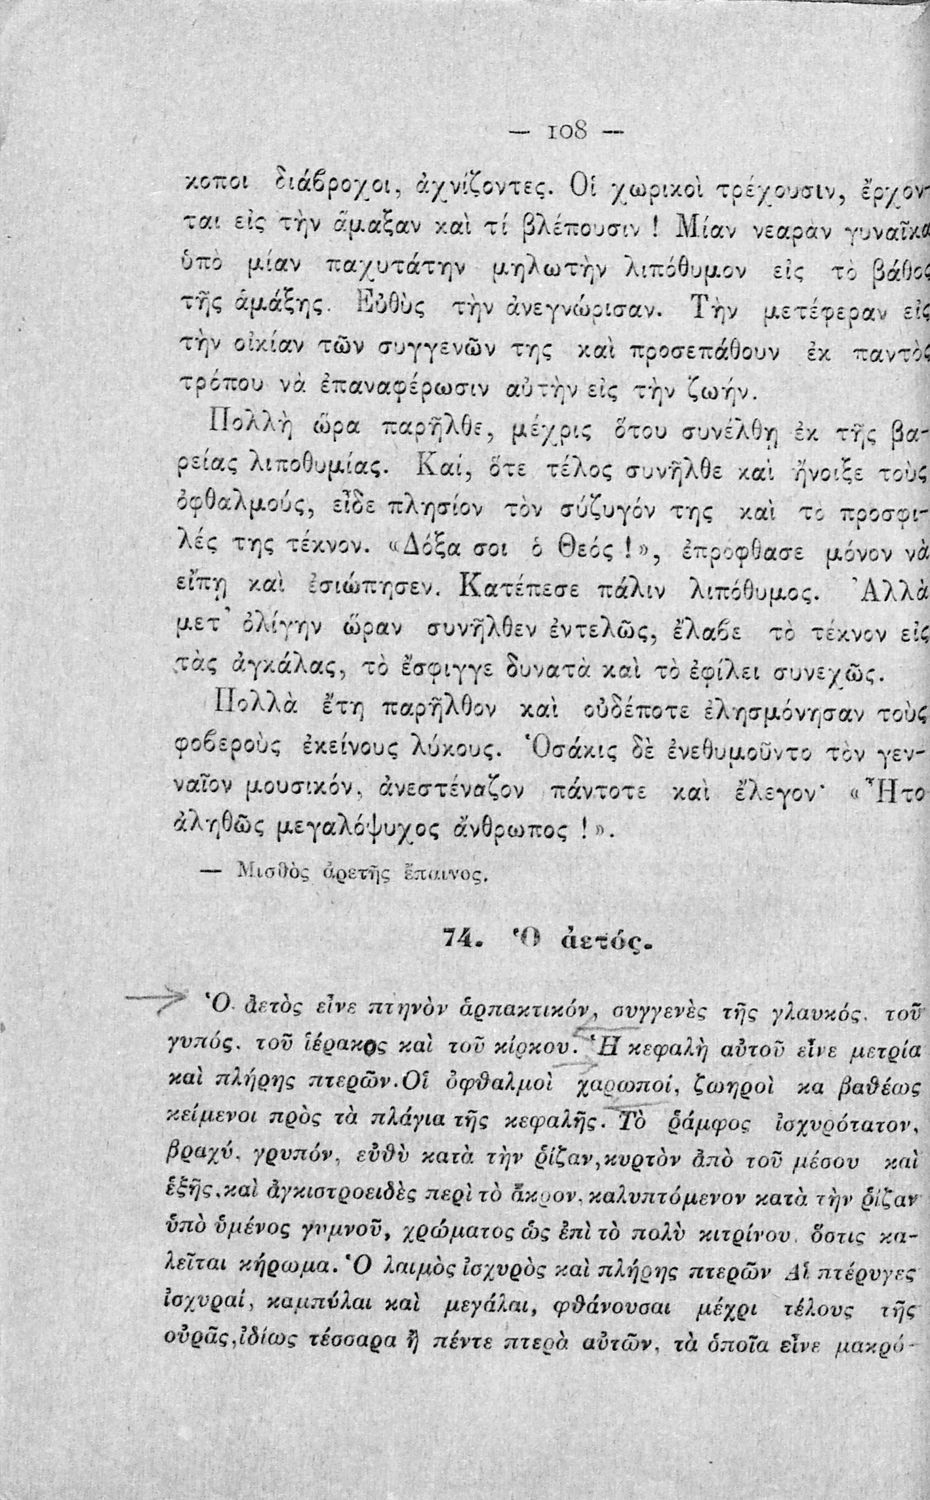 — 108 —
κοποι διάβροχοι, ἀχνίζοντες. Οἱ χωρικοὶ τρέχουσιν, ἔρχον-
ται εἰς τὴν ἅμαξαν καὶ τί βλέπουσιν ! Μίαν νεαρὰν γυναῖκα
ὑπὸ μίαν παχυτάτην μηλωτὴν λιπόθυμον εἰς τὸ βάθος
τῆς ἁμάξης. Εὐθὺς τὴν ἀνεγνώρισαν. Τὴν μετέφεραν εἰς
τὴν οἰκίαν τῶν συγγενῶν της καὶ προσεπάθουν ἐκ παντὸς
τρόπου νὰ ἐπαναφέρωσιν αὐτὴν εἰς τὴν ζωήν.
Πολλὴ ὥρα παρῆλθε, μέχρις ὅτου συνέλθῃ ἐκ τῆς βα-
ρείας λιποθυμίας. Καί, ὅτε τέλος συνῆλθε καὶ ἤνοιξε τοὺς
ὀφθαλμούς, εἶδε πλησίον τὸν σύζυγόν της καὶ τὸ προσφι-
λές της τέκνον. «Δόξα σοι ὁ Θεός !», ἐπρόφθασε μόνον νὰ
εἴπῃ καὶ ἐσιώπησεν. Κατέπεσε πάλιν λιπόθυμος. Ἀλλὰ
μετ᾽ ὀλίγην ὥραν συνῆλθεν ἐντελῶς, ἔλαβε τὸ τέκνον εἰς
τὰς ἀγκάλας, τὸ ἔσφιγγε δυνατὰ καὶ τὸ ἐφίλει συνεχῶς.
Πολλὰ ἔτη παρῆλθον καὶ οὐδέποτε ἐλησμόνησαν τοὺς
φοβεροὺς ἐκείνους λύκους. Ὁσάκις δὲ ἐνεθυμοῦντο τὸν γεν-
ναῖον μουσικόν, ἀνεστέναζον πάντοτε καὶ ἔλεγον· « Ἦτο
ἀληθῶς μεγαλόψυχος ἄνθρωπος !».
— Μισθὸς ἀρετῆς ἔπαινος.
74. Ὁ ἀετός.
Ὁ ἀετὸς εἶνε πτηνὸν ἁρπακτικόν, συγγενὲς τῆς γλαυκός, τοῦ
γυπός, τοῦ ἱέρακος καὶ τοῦ κίρκου. Ἡ κεφαλὴ αὐτοῦ εἶνε μετρία
καὶ πλήρης πτερῶν. Οἱ ὀφθαλμοὶ χαρωποί, ζωηροὶ κα βαθέως
κείμενοι πρὸς τὰ πλάγια τῆς κεφαλῆς. Τὸ ῥάμφος ἰσχυρότατον,
βραχύ, γρυπόν, εὐθὺ κατὰ τὴν ῥίζαν, κυρτὸν ἀπὸ τοῦ μέσου καὶ
ἑξῆς, καὶ ἀγκιστροειδὲς περὶ τὸ ἄκρον, καλυπτόμενον κατὰ τὴν ῥίζαν
ὑπὸ ὑμένος γυμνοῦ, χρώματος ὡς ἐπὶ τὸ πολὺ κιτρίνου, ὅστις κα-
λεῖται κήρωμα. Ὁ λαιμὸς ἰσχυρὸς καὶ πλήρης πτερῶν Αἱ πτέρυγες
ἰσχυραί, καμπύλαι καὶ μεγάλαι, φθάνουσαι μέχρι τέλους τῆς
οὐρᾶς, ἰδίως τέσσαρα ἢ πέντε πτερὰ αὐτῶν, τὰ ὁποῖα εἶνε μακρό-